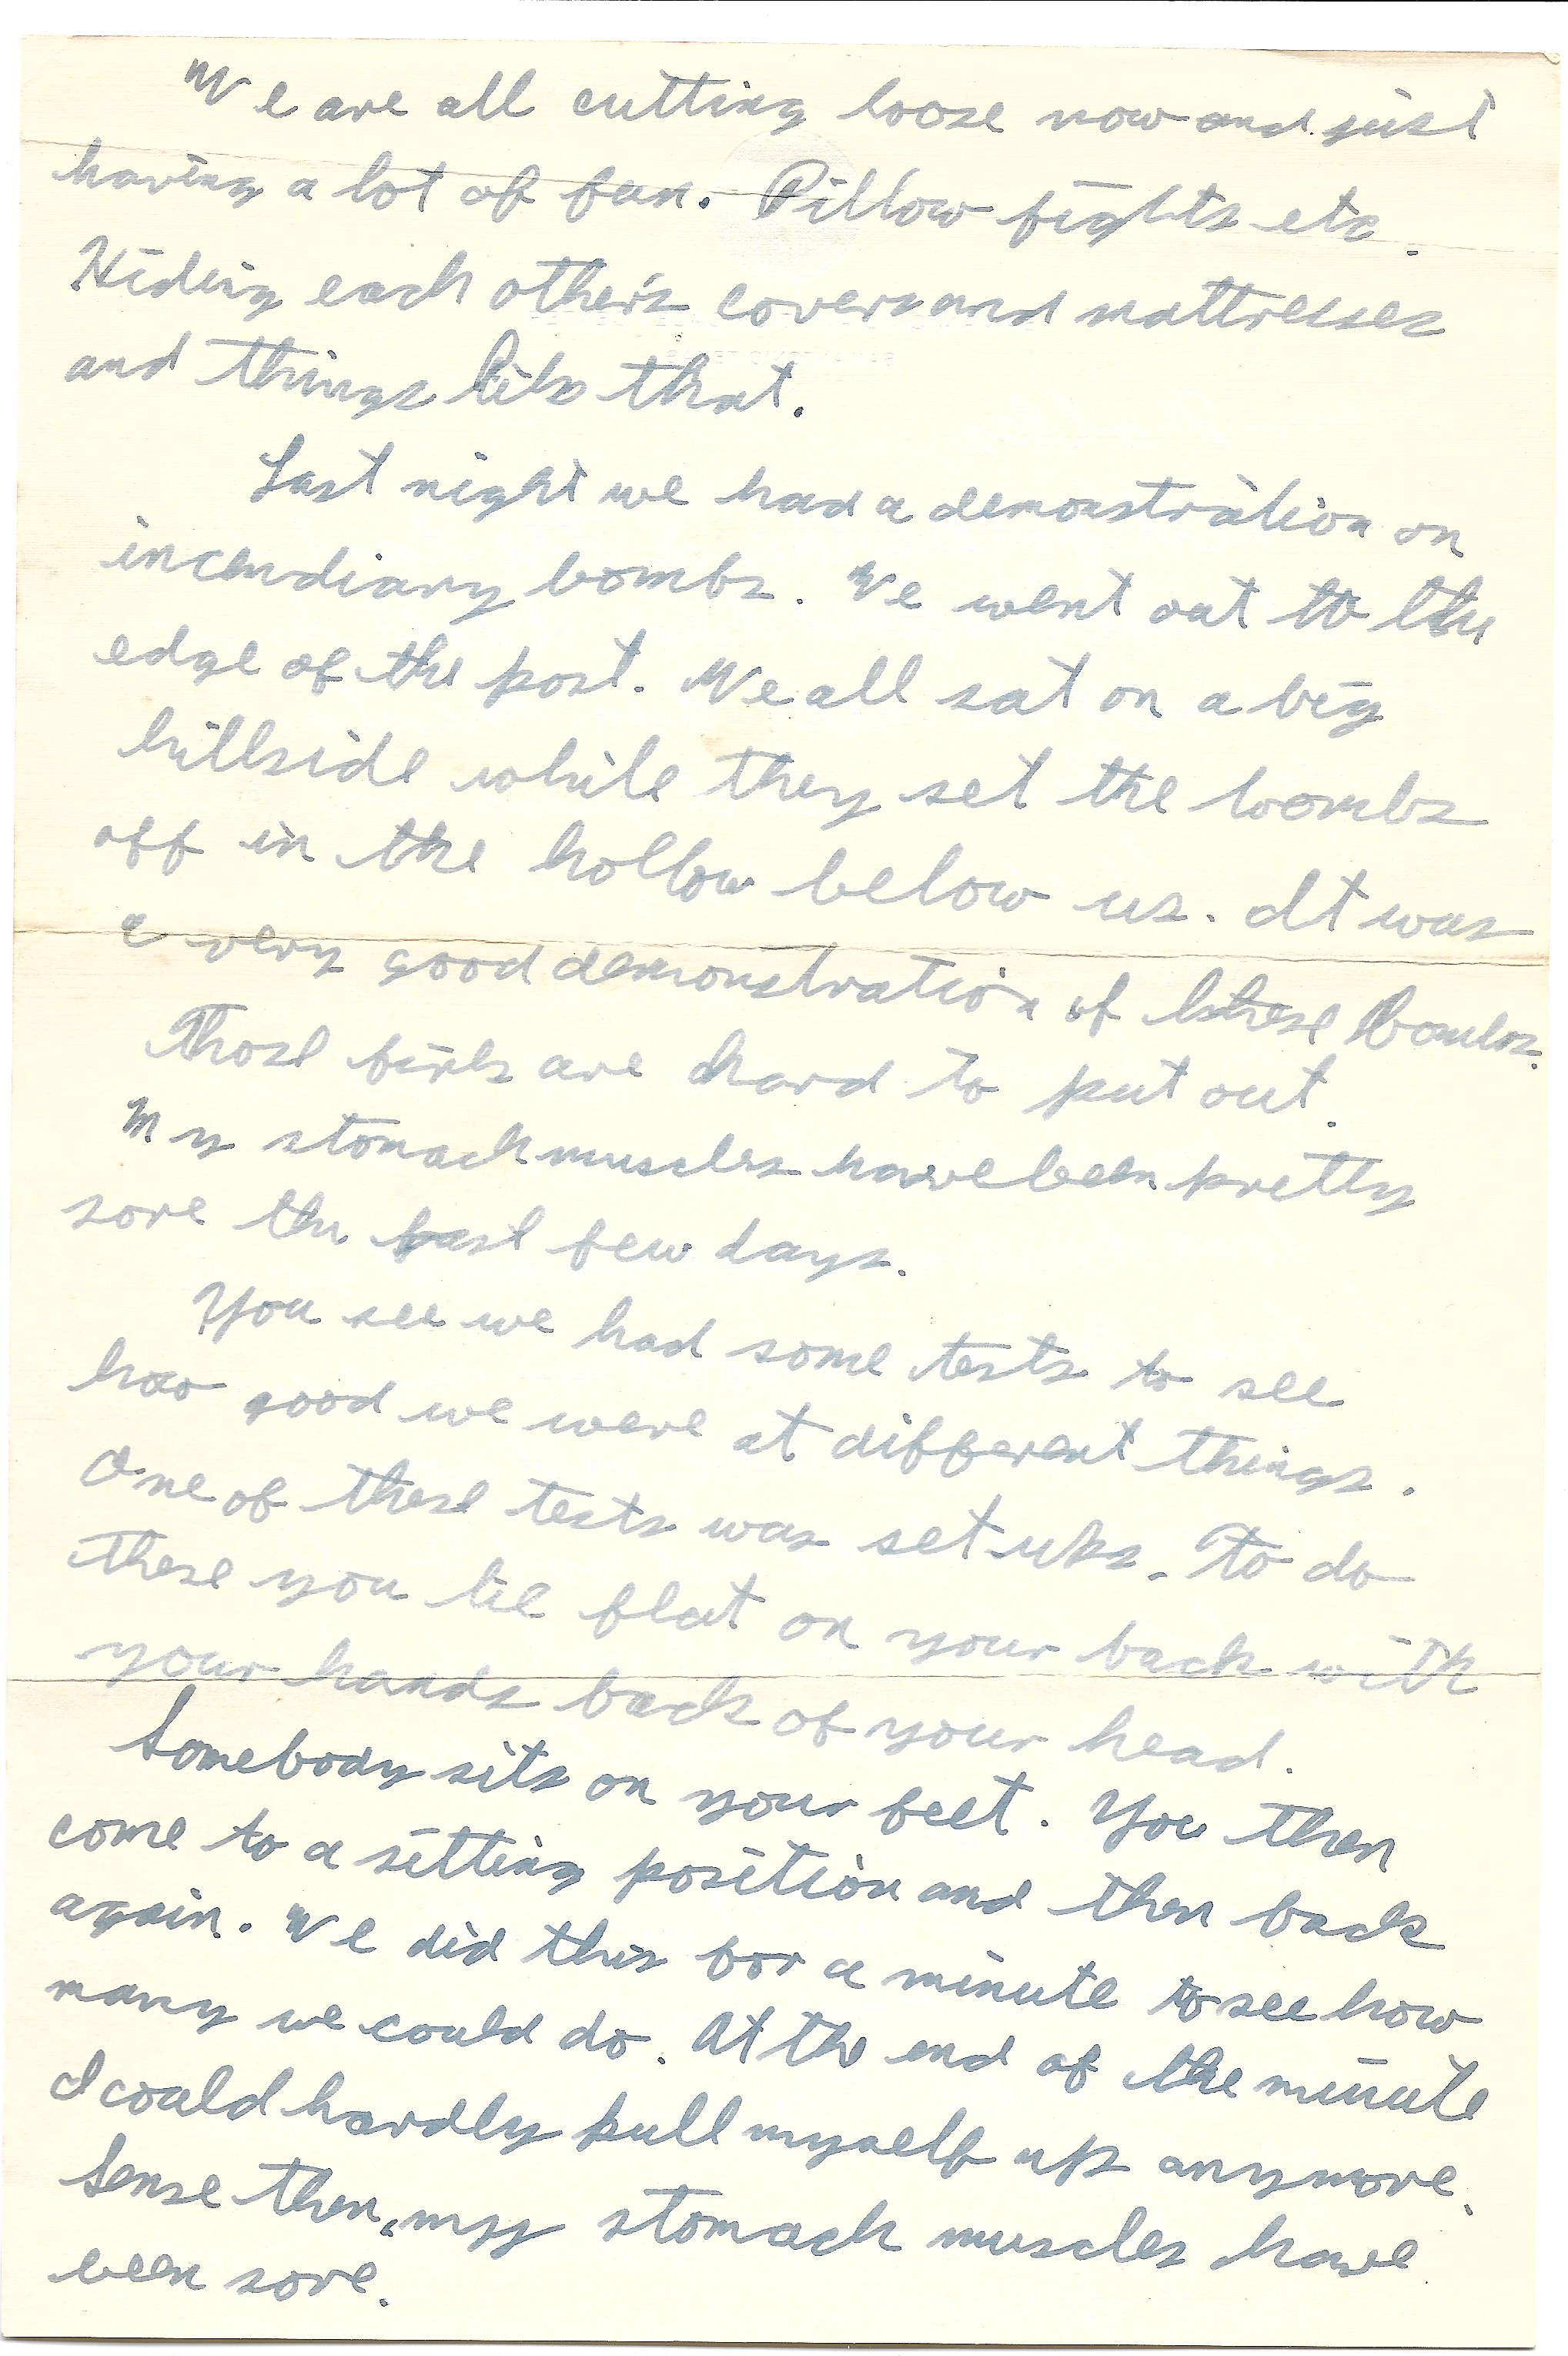 We are all cutting loose now and just
having a lot of fun. Pillow fights etc.
Hiding each other's covers and mattresses
and things like that.
Last night we had a demonstration on
incendiary bombs. We went out to the
edge of the post. We all sat on a big
hillside while they set the bombs
off in the hollow below us. It was
a very good demonstration of these bombs.
Those fires are hard to put out.
My stomach muscles have been pretty
sore the past few days.
You see we had some tests to see
how good we were at different things.
One of these tests was set ups. To do
these you lie flat on your back with
your hands back of your head.
Somebody sits on your feet. You then
come to a sitting position and then back
again. We did this for a minute to see how
many we could do. At the end of the minute
I could hardly pull myself up anymore.
Sense then, my stomach muscles have
been sore.